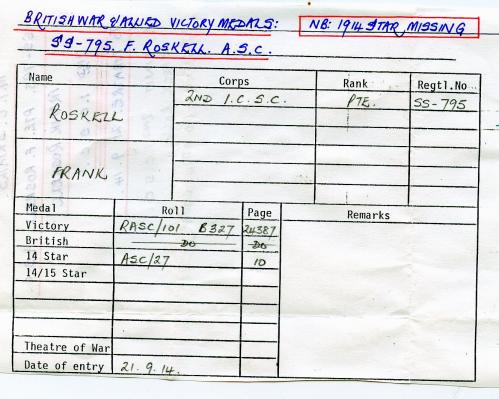 BRITISH WAR & ALLIED VICTORY MEDALS: NB: 1914 STAR, MISSING
SS-795. F. ROSKELL. A.S.C.
Name Corps Rank Regtl.No
ROSKELL 2ND I.C.S.C. PTE. SS-795
FRANK
Medal Roll Page Remarks
Victory RASC/101 B327 24387
British DO DO
14 Star ASC/27 10
14/15 Star
Theatre of War
Date of entry 21.9.14.